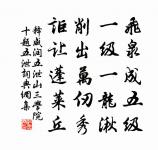 飛泉成五級
一級一龍湫
削出萬仞秀
詎讓蓬萊丘
釋咸潤五泄山三學院
十題五泄詞典網集